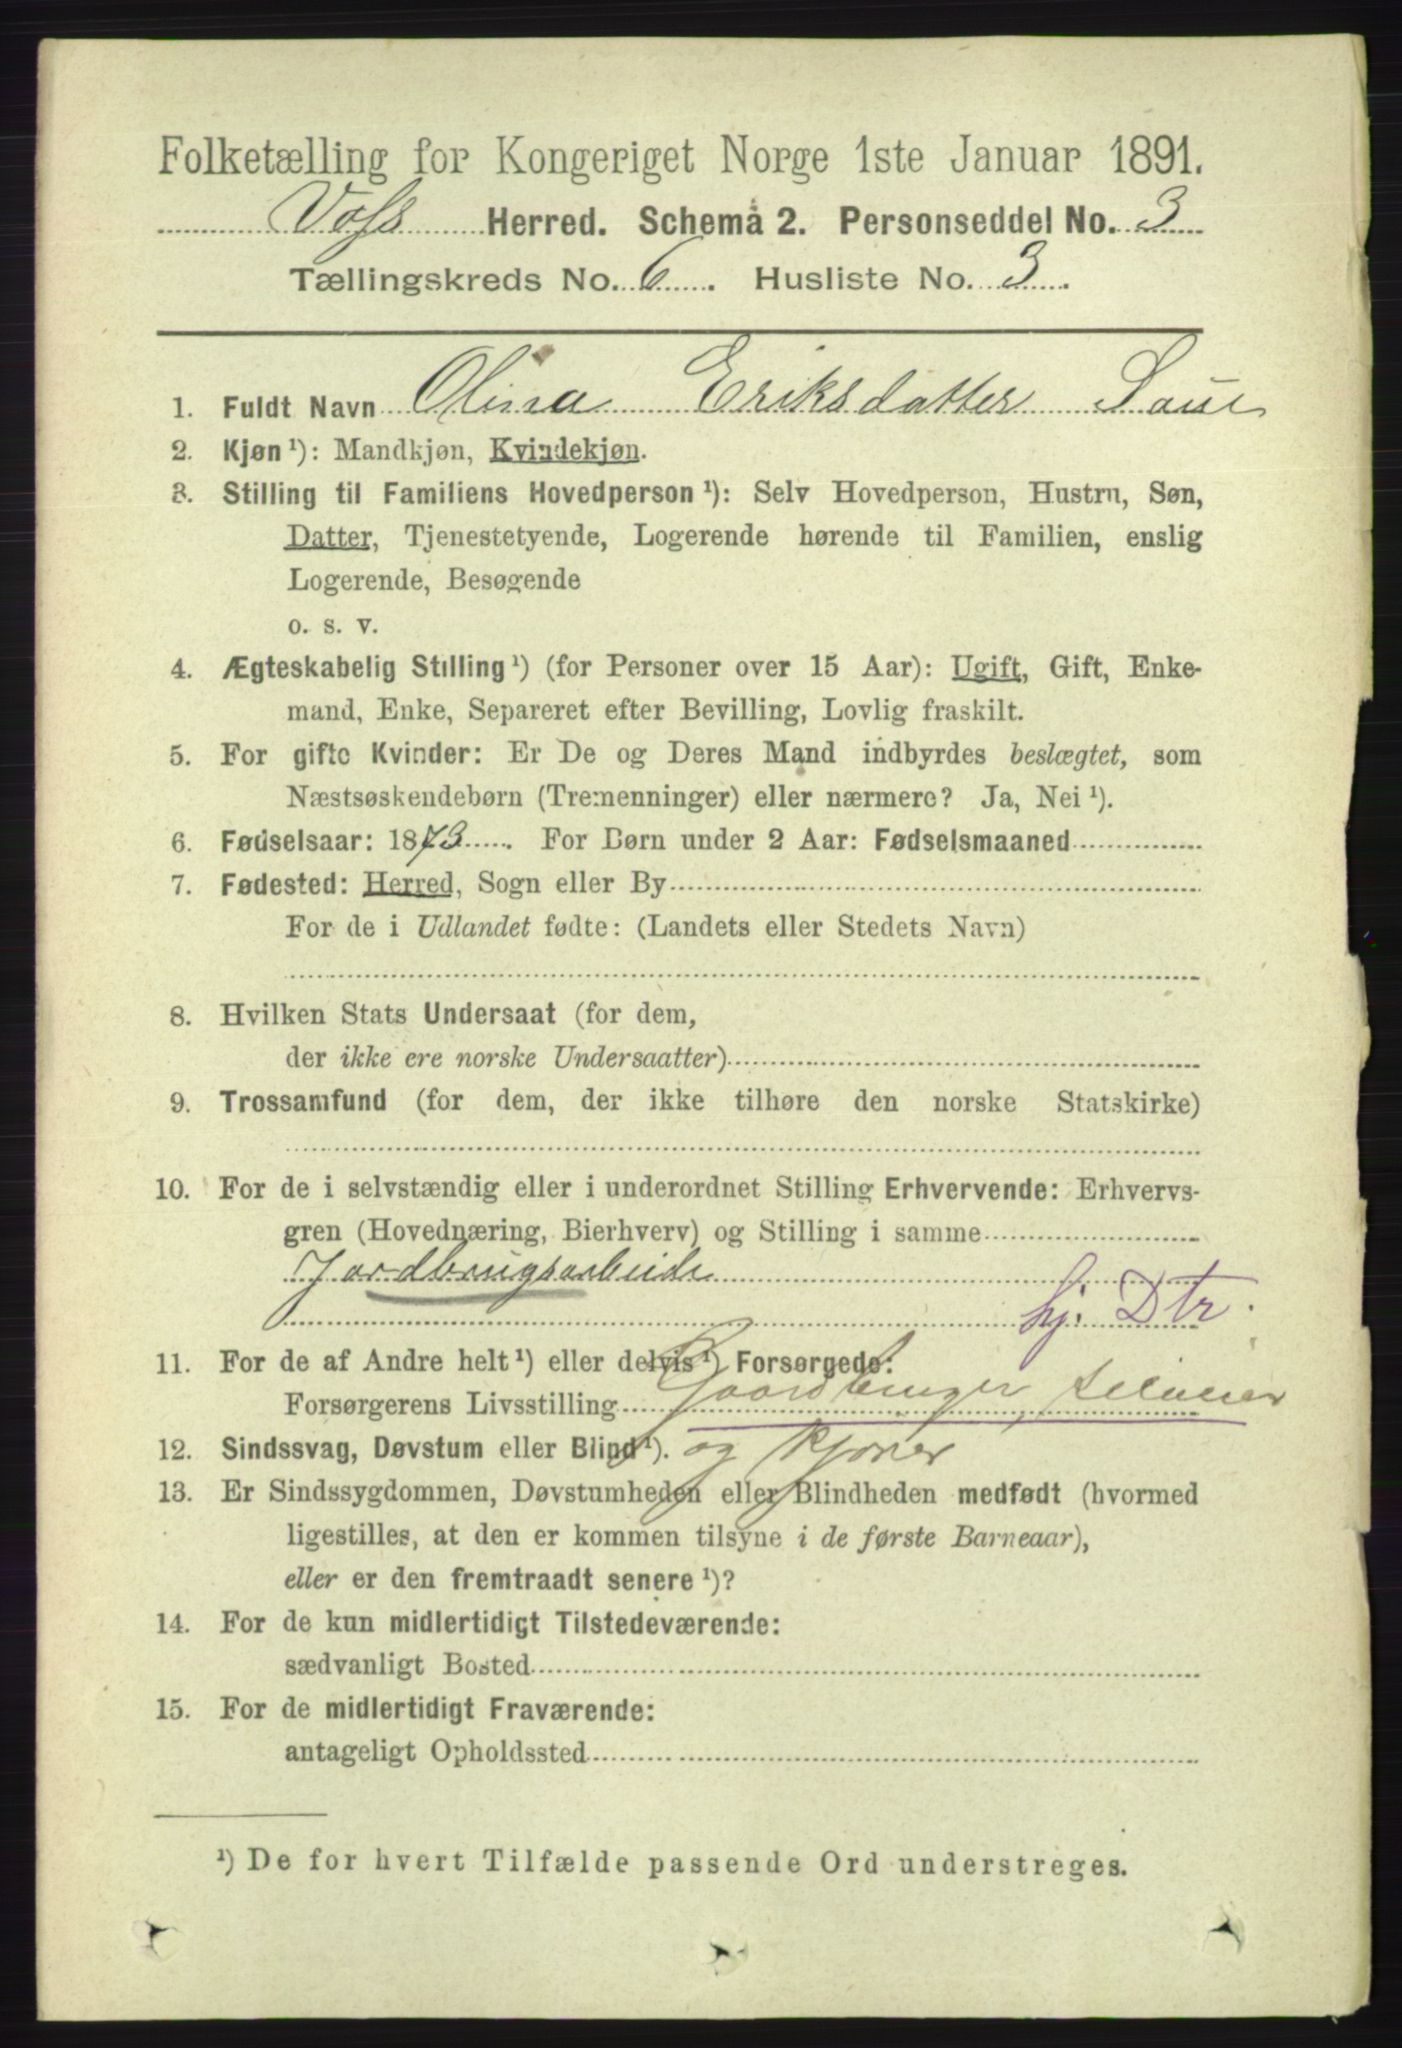 Folketælling for Kongeriget Norge 1ste Januar 1891.
Voss Herred. Schema 2. Personseddel No. 3
Tællingskreds No. 6. Husliste No. 3.
1. Fuldt Navn Olina Eriksdatter Saue
2. Kjøn ¹): Mandkjøn, Kvindekjøn.
3. Stilling til Familiens Hovedperson ¹): Selv Hovedperson, Hustru, Søn,
Datter, Tjenestetyende, Logerende hørende til Familien, enslig
Logerende, Besøgende
o. s. v.
4. Ægteskabelig Stilling ¹) (for Personer over 15 Aar): Ugift, Gift, Enke-
mand, Enke, Separeret efter Bevilling, Lovlig fraskilt.
5. For gifte Kvinder: Er De og Deres Mand indbyrdes beslægtet, som
Næstsøskendebørn (Tremenninger) eller nærmere? Ja, Nei ¹).
6. Fødselsaar: 1873. For Børn under 2 Aar: Fødselsmaaned
7. Fødested: Herred, Sogn eller By
For de i Udlandet fødte: (Landets eller Stedets Navn)
8. Hvilken Stats Undersaat (for dem,
der ikke ere norske Undersaatter)
9. Trossamfund (for dem, der ikke tilhøre den norske Statskirke)
10. For de i selvstændig eller i underordnet Stilling Erhvervende: Erhvervs-
gren (Hovednæring, Bierhverv) og Stilling i samme
Jordbrugsarbeide
hj. Dtr.
11. For de af Andre helt ¹) eller delvis ¹) Forsørgede:
Forsørgerens Livsstilling Gaardbruger,
12. Sindssvag, Døvstum eller Blind ¹). og
13. Er Sindssygdommen, Døvstumheden eller Blindheden medfødt (hvormed
ligestilles, at den er kommen tilsyne i de første Barneaar),
eller er den fremtraadt senere ¹)?
14. For de kun midlertidigt Tilstedeværende:
sædvanligt Bosted
15. For de midlertidigt Fraværende:
antageligt Opholdssted
¹) De for hvert Tilfælde passende Ord understreges.